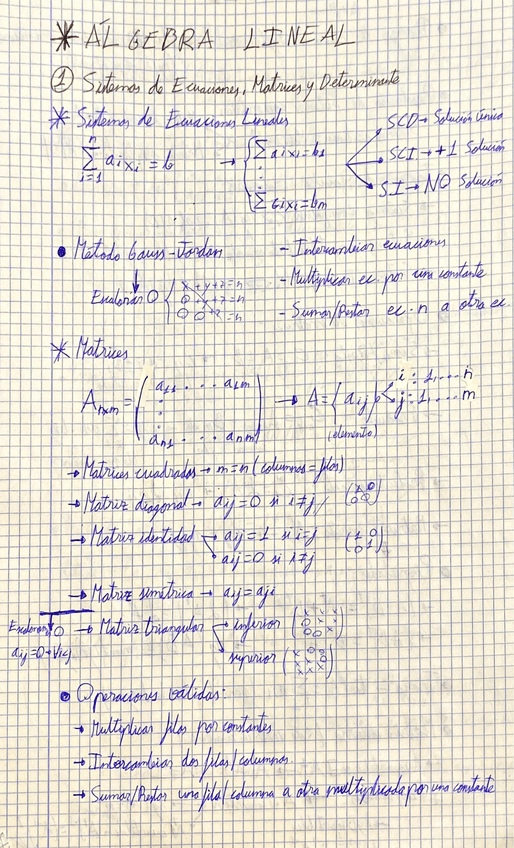 * ÁLGEBRA LINEAL
① Sistemas de Ecuaciones, Matrices y Determinante
* Sistemas de Ecuaciones Lineales
n ∑ i=1 aixi = b → { ∑ aixi = b1 ⋮ ∑ aixi = bm
SCD → Solución única
SCI → +1 Solución
SI → NO Solución
• Método Gauss-Jordan
- Intercambiar ecuaciones
- Multiplicar ec. por una constante
- Sumar/Restar ec. n a otra ec.
Escalonar 0 { x+y+z=n
0+y+z=n
0 0+z=n
* Matrices
Anxm = ( a11 . . . a1m ⋮ an1 . . . anm ) → A = { aij } i: 1, ... n j: 1, ... m
(elemento)
→ Matrices cuadradas → m=n (columnas = filas)
→ Matriz diagonal → aij=0 si i≠j / (x 0 0 0)
→ Matriz identidad → aij=1 si i=j (1 0 0 1)
aij=0 si i≠j
→ Matriz simétrica → aij=aji
Escalonar 0
aij=0 ∀i<j
→ Matriz triangular → inferior (x x x 0 x x 0 0 x)
superior (x 0 0 x x 0 x x x)
• Operaciones válidas:
→ Multiplicar filas por constantes
→ Intercambiar dos filas/columnas.
→ Sumar/Restar una fila/columna a otra multiplicada por una constante